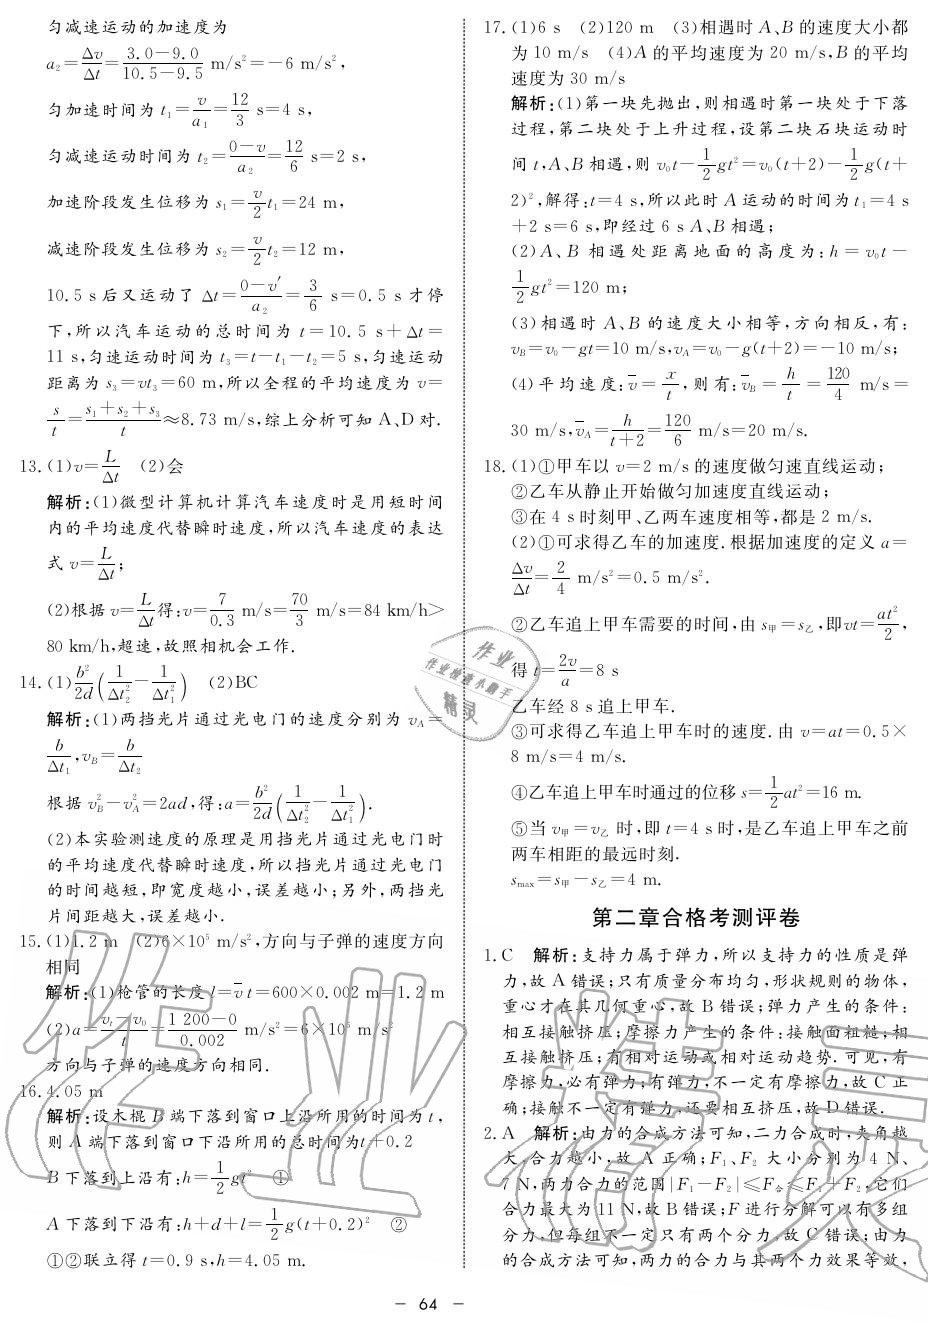 匀减速运动的加速度为
a₂=Δv/Δt=(3.0-9.0)/(10.5-9.5) m/s²=-6 m/s²,
匀加速时间为 t₁=v/a₁=12/3 s=4 s,
匀减速运动时间为 t₂=(0-v)/a₂=12/6 s=2 s,
加速阶段发生位移为 s₁=v/2 t₁=24 m,
减速阶段发生位移为 s₂=v/2 t₂=12 m,
10.5 s 后又运动了 Δt=(0-v′)/a₂=3/6 s=0.5 s 才停
下,所以汽车运动的总时间为 t=10.5 s+Δt=
11 s,匀速运动时间为 t₃=t-t₁-t₂=5 s,匀速运动
距离为 s₃=vt₃=60 m,所以全程的平均速度为 v=
s/t=(s₁+s₂+s₃)/t≈8.73 m/s,综上分析可知 A、D 对.
13.(1)v=L/Δt (2)会
解析:(1)微型计算机计算汽车速度时是用短时间
内的平均速度代替瞬时速度,所以汽车速度的表达
式 v=L/Δt;
(2)根据 v=L/Δt得:v=7/0.3 m/s=70/3 m/s=84 km/h>
80 km/h,超速,故照相机会工作.
14.(1)b²/2d(1/Δt₂²-1/Δt₁²) (2)BC
解析:(1)两挡光片通过光电门的速度分别为 v_A=
b/Δt₁,v_B=b/Δt₂
根据 v_B²-v_A²=2ad,得:a=b²/2d(1/Δt₂²-1/Δt₁²).
(2)本实验测速度的原理是用挡光片通过光电门时
的平均速度代替瞬时速度,所以挡光片通过光电门
的时间越短,即宽度越小,误差越小;另外,两挡光
片间距越大,误差越小.
15.(1)1.2 m (2)6×10⁵ m/s²,方向与子弹的速度方向
相同
解析:(1)枪管的长度 l=v̄ t=600×0.002 m=1.2 m
(2)a=(v_t-v₀)/t=(1 200-0)/0.002 m/s²=6×10⁵ m/s²
方向与子弹的速度方向相同.
16.4.05 m
解析:设木棍 B 端下落到窗口上沿所用的时间为 t,
则 A 端下落到窗口下沿所用的总时间为t+0.2
B 下落到上沿有:h=1/2 gt² ①
A 下落到下沿有:h+d+l=1/2 g(t+0.2)² ②
①②联立得 t=0.9 s,h=4.05 m.
17.(1)6 s (2)120 m (3)相遇时 A、B 的速度大小都
为 10 m/s (4)A 的平均速度为 20 m/s,B 的平均
速度为 30 m/s
解析:(1)第一块先抛出,则相遇时第一块处于下落
过程,第二块处于上升过程,设第二块石块运动时
间 t,A、B 相遇,则 v₀t-1/2 gt²=v₀(t+2)-1/2 g(t+
2)²,解得:t=4 s,所以此时 A 运动的时间为 t₁=4 s
+2 s=6 s,即经过 6 s A、B 相遇;
(2)A、B 相遇处距离地面的高度为:h=v₀t-
1/2 gt²=120 m;
(3)相遇时 A、B 的速度大小相等,方向相反,有:
v_B=v₀-gt=10 m/s,v_A=v₀-g(t+2)=-10 m/s;
(4)平均速度:v̄=x/t,则有:v̄_B=h/t=120/4 m/s=
30 m/s,v̄_A=h/(t+2)=120/6 m/s=20 m/s.
18.(1)①甲车以 v=2 m/s 的速度做匀速直线运动;
②乙车从静止开始做匀加速度直线运动;
③在 4 s 时刻甲、乙两车速度相等,都是 2 m/s.
(2)①可求得乙车的加速度.根据加速度的定义 a=
Δv/Δt=2/4 m/s²=0.5 m/s².
②乙车追上甲车需要的时间,由 s甲=s乙,即vt=at²/2,
得 t=2v/a=8 s
乙车经 8 s 追上甲车.
③可求得乙车追上甲车时的速度.由 v=at=0.5×
8 m/s=4 m/s.
④乙车追上甲车时通过的位移 s=1/2 at²=16 m.
⑤当 v甲=v乙 时,即 t=4 s 时,是乙车追上甲车之前
两车相距的最远时刻.
s_max=s甲-s乙=4 m.
第二章合格考测评卷
1.C 解析:支持力属于弹力,所以支持力的性质是弹
力,故 A 错误;只有质量分布均匀,形状规则的物体,
重心才在其几何重心,故 B 错误;弹力产生的条件:
相互接触挤压;摩擦力产生的条件:接触面粗糙;相
互接触挤压;有相对运动或相对运动趋势.可见,有
摩擦力,必有弹力;有弹力,不一定有摩擦力,故 C 正
确;接触不一定有弹力,还要相互挤压,故 D 错误.
2.A 解析:由力的合成方法可知,二力合成时,夹角越
大,合力越小,故 A 正确;F₁、F₂ 大小分别为 4 N、
7 N,两力合力的范围|F₁-F₂|≤F合≤F₁+F₂,它们
合力最大为 11 N,故 B 错误;F 进行分解可以有多组
分力,但每组不一定只有两个分力,故 C 错误;由力
的合成方法可知,两力的合力与其两个力效果等效,
作业
作业检查小助手
精灵
作业精灵
- 64 -